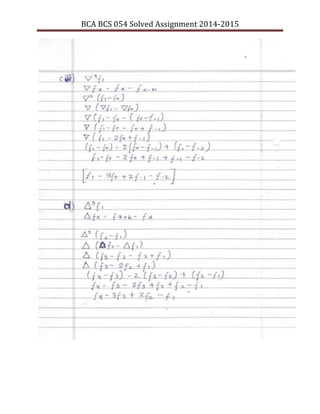 BCA BCS 054 Solved Assignment 2014-2015
∇³f₁
∇fx = fx - fx-n
∇² (f₁-f₀)
∇ (∇f₁ - ∇f₀)
∇ (f₁-f₀ - (f₀-f₋₁)
∇ (f₁-f₀ - f₀+f₋₁)
∇ (f₁-2f₀+f₋₁)
(f₁-f₀) - 2(f₀-f₋₁) + (f₋₁-f₋₂)
f₁-f₀ - 2f₀ + f₋₁ + f₋₁ - f₋₂
[f₁ - 3f₀ + 2f₋₁ - f₋₂]
d) Δ³f₁
Δfx = fx+h - fx
Δ² (f₂-f₁)
Δ (Δf₂ - Δf₁)
Δ (f₃ - f₂ - f₂+f₁)
Δ (f₃ - 2f₂ + f₁)
(f₄-f₃) - 2(f₃-f₂) + (f₂-f₁)
f₄ - f₃ - 2f₃ + f₂ + f₂ - f₁
f₄ - 3f₃ + 2f₂ - f₁